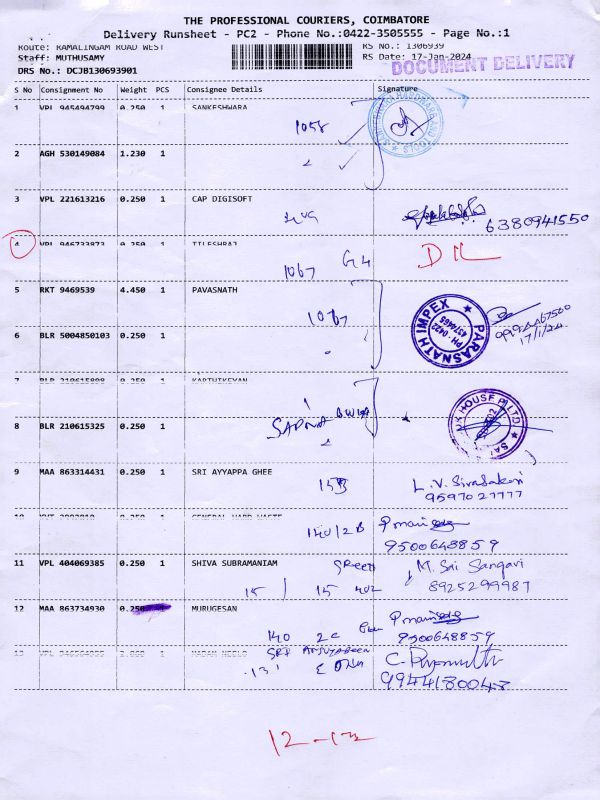 THE PROFESSIONAL COURIERS, COIMBATORE
Delivery Runsheet - PC2 - Phone No.:0422-3505555 - Page No.:1
Route: RAMALINGAM ROAD WEST RS No.: 1306939
Staff: MUTHUSAMY RS Date: 17-Jan-2024
DOCUMENT DELIVERY
DRS No.: DCJB130693901
S No Consignment No Weight PCS Consignee Details Signature
1 VPL 945494799 0.250 1 SANKESHWARA
1058
2 AGH 530149084 1.230 1
3 VPL 221613216 0.250 1 CAP DIGISOFT
6380941550
4 VPL 946733873 0.250 1
1067 G4 DL
5 RKT 9469539 4.450 1 PAVASNATH
1067
PARASNATH IMPEX
PH : 0422
4374465
17/1/24
6 BLR 5004850103 0.250 1
7 BLR 210615898 0.250 1 KARTHIKEYAN
SAPNA
8 BLR 210615325 0.250 1
9 MAA 863314431 0.250 1 SRI AYYAPPA GHEE
153 L.V. Sivasakthi
9597027777
10 GENERAL HARD WASTE
140/2B Pmani
9500648859
11 VPL 404069385 0.250 1 SHIVA SUBRAMANIAM
M. Sri Sangavi
15 / 15 402 8925299987
12 MAA 863734930 0.250 MURUGESAN
140 2C Pmani
9500648859
13
SRI
9944180048